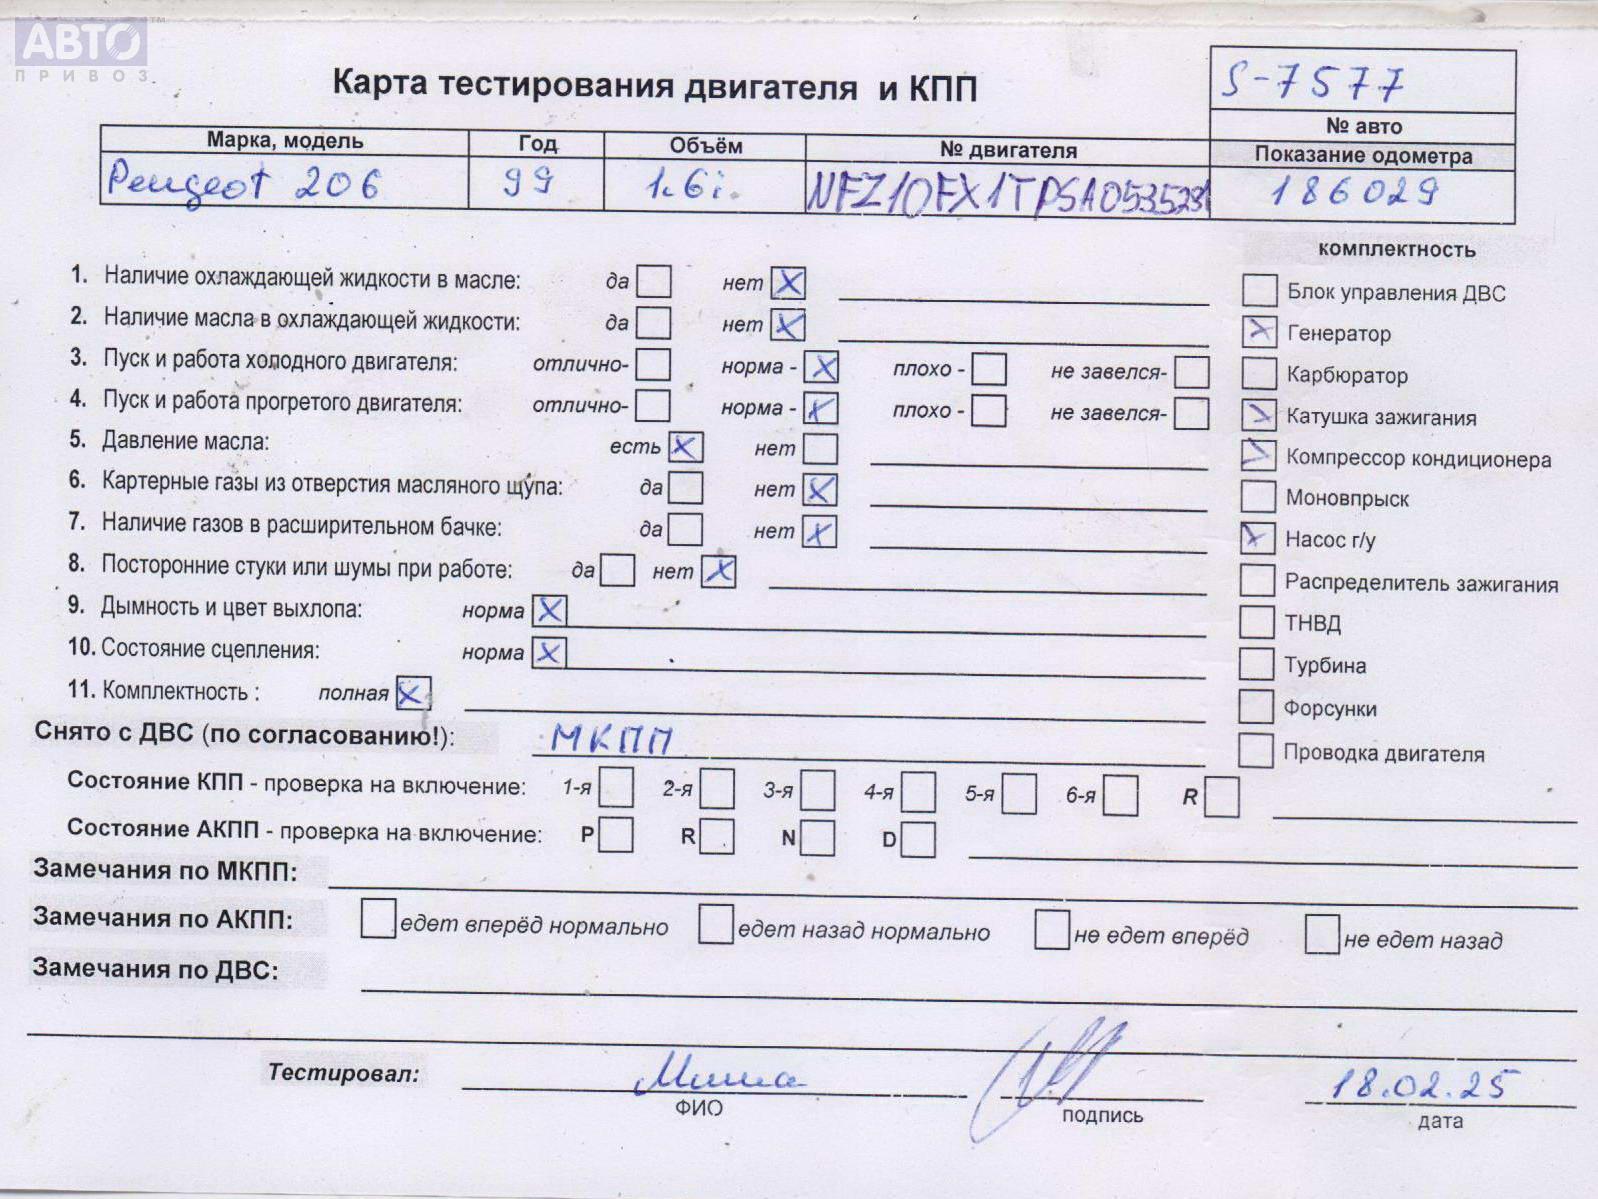 АВТО
ПРИВОЗ
Карта тестирования двигателя и КПП
S-7577
№ авто
Марка, модель Год Объём № двигателя Показание одометра
Peugeot 206 99 1.6i. NFZ10FX1TPSA0535231 186029
комплектность
1. Наличие охлаждающей жидкости в масле: да нет X
Блок управления ДВС
2. Наличие масла в охлаждающей жидкости: да нет X
X Генератор
3. Пуск и работа холодного двигателя: отлично- норма - X плохо - не завелся-
Карбюратор
4. Пуск и работа прогретого двигателя: отлично- норма - X плохо - не завелся-
X Катушка зажигания
5. Давление масла: есть X нет
X Компрессор кондиционера
6. Картерные газы из отверстия масляного щупа: да нет X
Моновпрыск
7. Наличие газов в расширительном бачке: да нет X
X Насос г/у
8. Посторонние стуки или шумы при работе: да нет X
Распределитель зажигания
9. Дымность и цвет выхлопа: норма X
ТНВД
10. Состояние сцепления: норма X
Турбина
11. Комплектность : полная X
Форсунки
Снято с ДВС (по согласованию!): МКПП
Проводка двигателя
Состояние КПП - проверка на включение: 1-я 2-я 3-я 4-я 5-я 6-я R
Состояние АКПП - проверка на включение: P R N D
Замечания по МКПП:
Замечания по АКПП: едет вперёд нормально едет назад нормально не едет вперёд не едет назад
Замечания по ДВС:
Тестировал: Миша 18.02.25
ФИО подпись дата